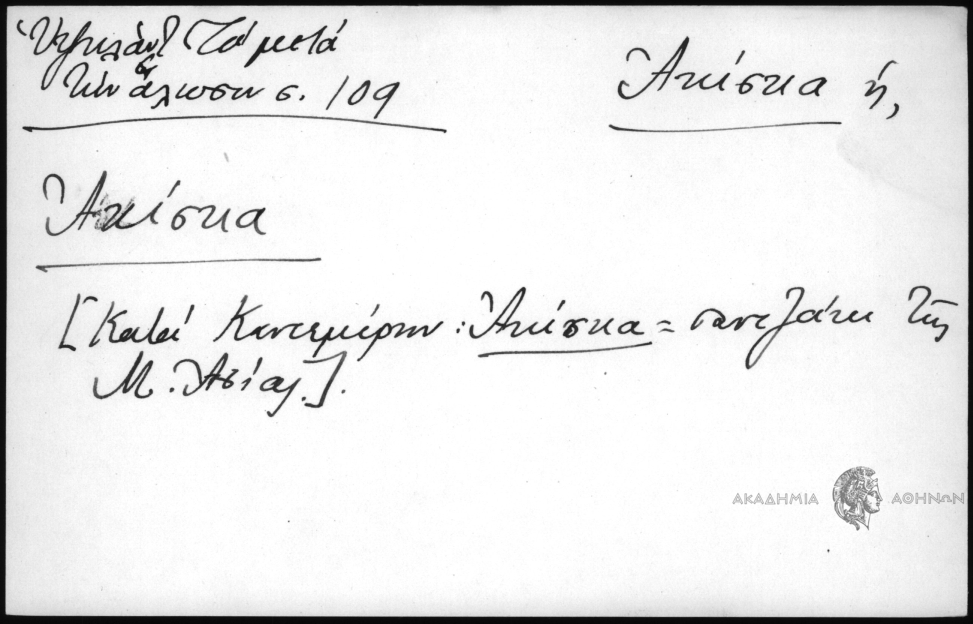 Ὑψηλάντ. Τὰ μετὰ
τὴν ἅλωσιν σ. 109
Ἀκίσκα ἡ,
Ἀκίσκα
[Κατὰ Καντεμίρην: Ἀκίσκα = σαντζάκι τῆς
Μ. Ἀσίας].
ΑΚΑΔΗΜΙΑ ΑΘΗΝΩΝ